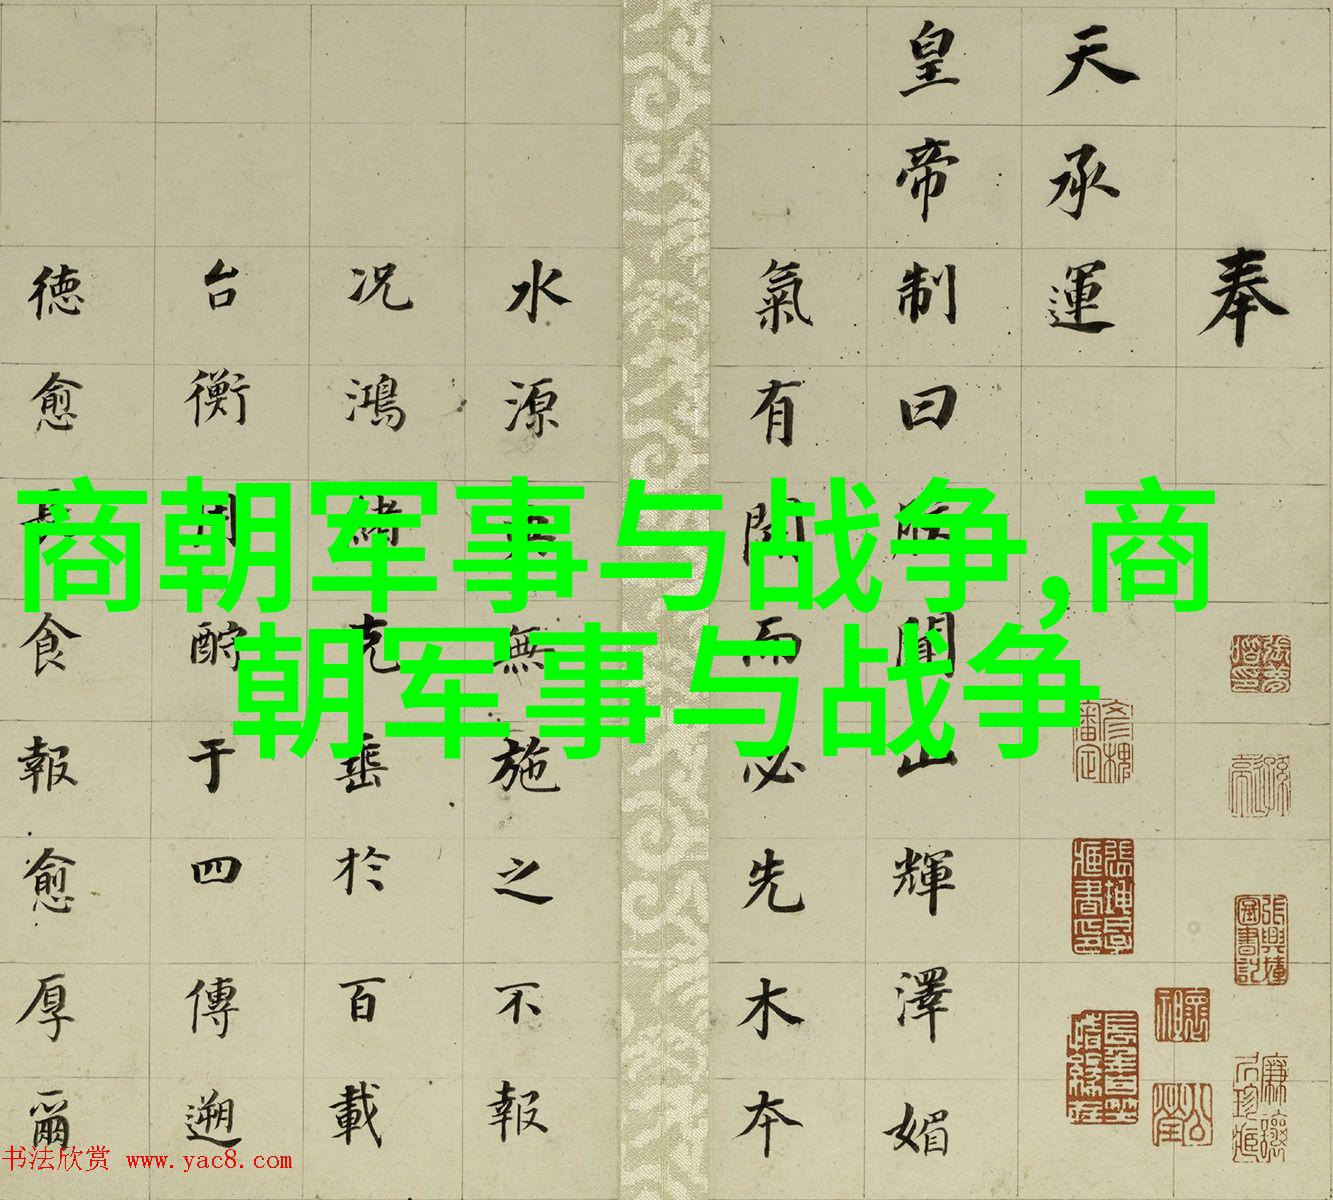 奉
天承運
皇帝制曰朕聞山輝澤媚
氣有開而必先木本
水源無施之不報
况鴻緒克垂於百載
台衡酧于四傳遡
德愈長食報愈厚爾
商朝军事与战争,商
朝军事与战争
书法欣赏 www.yac8.com